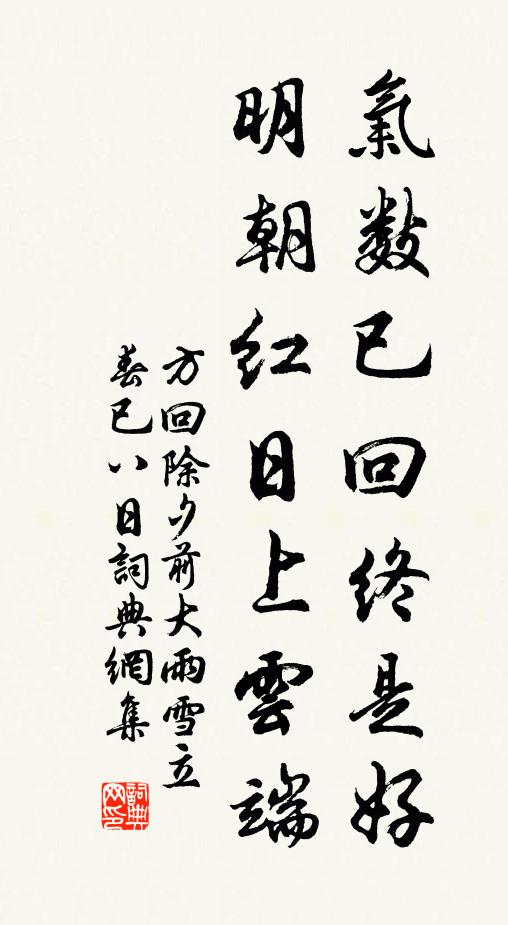 氣數已回終是好
明朝紅日上雲端
方回除夕前大雨雪立
春已八日詞典網集
詞典
网印